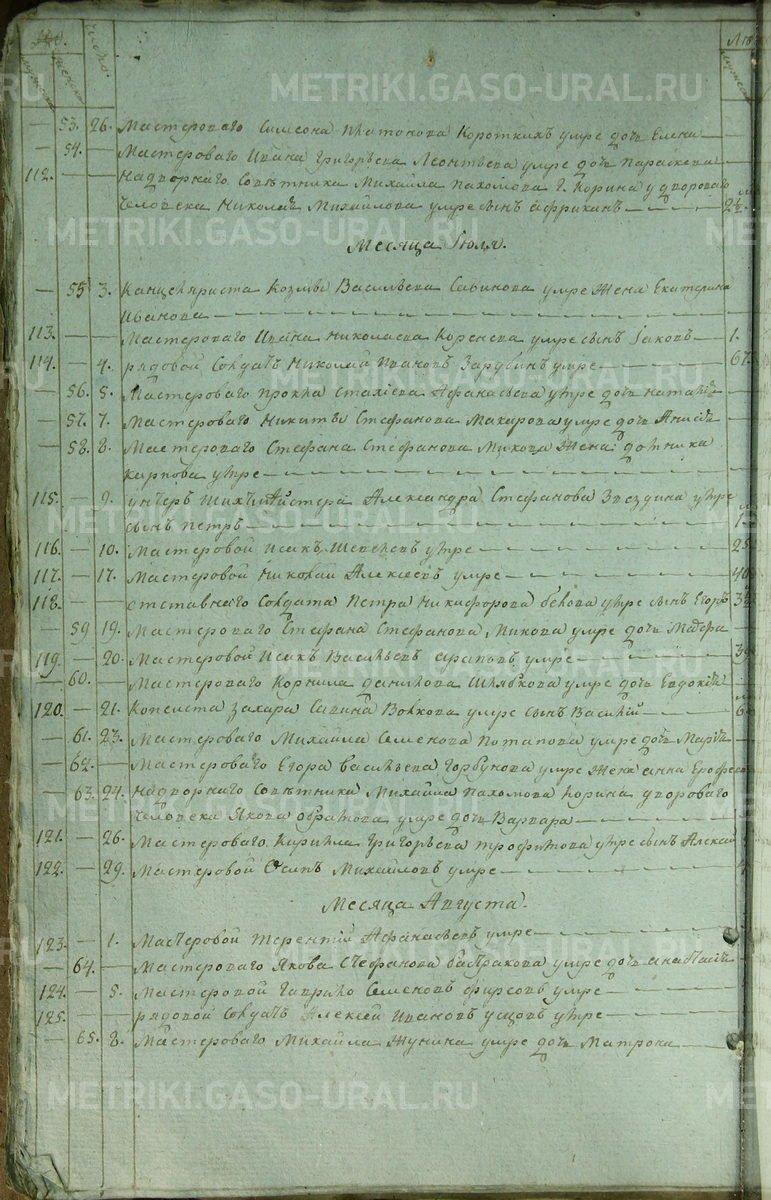 число.
53. 26. Мастероваго Симеона Платонова Короткихъ умре дочь Елена
54. Мастероваго Ивана Григорьева Леонтьева умре дочь Параскева
112. Надворнаго Совѣтника Михайла Пахомова г. Корина у двороваго
человека Николая Михайлова умре сынъ Африканъ 2½
Месяца Іюля.
55 3. Канцеляриста Козмы Васильева Савинова умре жена Екатерина
Иванова
113. Мастероваго Ивана Николаева Коренева умре сынъ Іаковъ 1.
114. 4. рядовой Солдатъ Николай Ивановъ Зарубинъ умре 67.
56. 5. Мастероваго Прокла Стахіева Афанасьева умре дочь Наталія
57. 7. Мастероваго Никиты Стефанова Макарова умре дочь Анисія
58. 8. Мастероваго Стефана Стефанова Микова жена Домника
Карпова умре
115. 9. унтеръ Александра Стефанова Звездина умре
сынъ Петръ 1
116. 10. Мастеровой Исакъ умре 25
117. 17. Мастеровой Николай Алексѣевъ умре 40
118. отставнаго Солдата Петра Никифорова Бѣлова умре сынъ Егоръ 3½
59 19. Мастероваго Стефана Стефанова Микова умре дочь
119. 20. Мастеровой Исакъ Васильевъ умре 3
60. Мастероваго Корнила Данилова Шлябкова умре дочь Евдокія
120. 21. Кописта Захара Савина Волкова умре сынъ Василій 6
61. 23. Мастероваго Михайла Семенова Потапова умре дочь Марія
62. Мастероваго Егора Васильева Горбунова умре жена Анна Ерофеева
63. 24. Надворнаго Совѣтника Михайла Пахомова Корина двороваго
человека Якова умре дочь Варвара
121. 26. Мастероваго Кирилла Григорьева Трофимова умре сынъ Алексѣй
122. 29. Мастеровой Осипъ Михайловъ умре
Месяца Августа.
123. 1. Мастеровой Терентій Афанасьевъ умре
64. Мастероваго Якова Стефанова Бастракова умре дочь Анастасія
124. 5. Мастеровой Гаврило Семеновъ Фирсовъ умре
125. рядовой Солдатъ Алексѣй Ивановъ умре
65. 8. Мастероваго Михайла Жунина умре дочь Матрона
METRIKI.GASO-URAL.RU